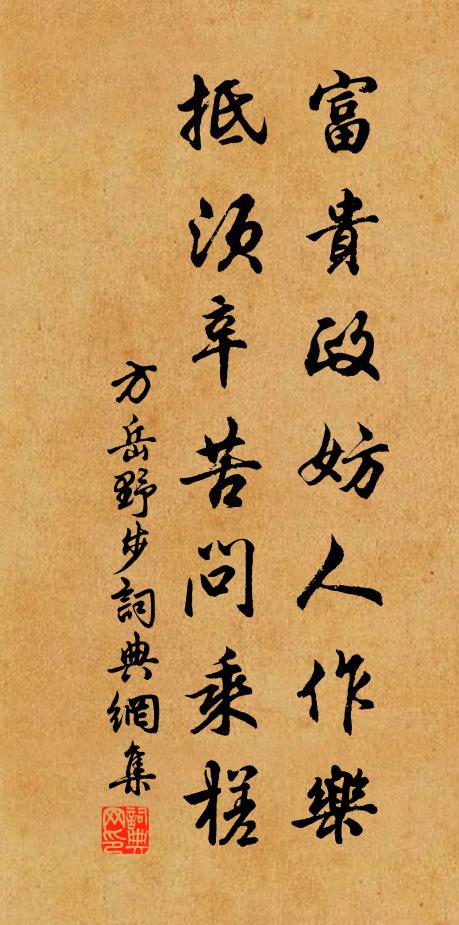 富貴政妨人作樂
抵須辛苦問乘槎
方岳野步詞典網集
詞典网印